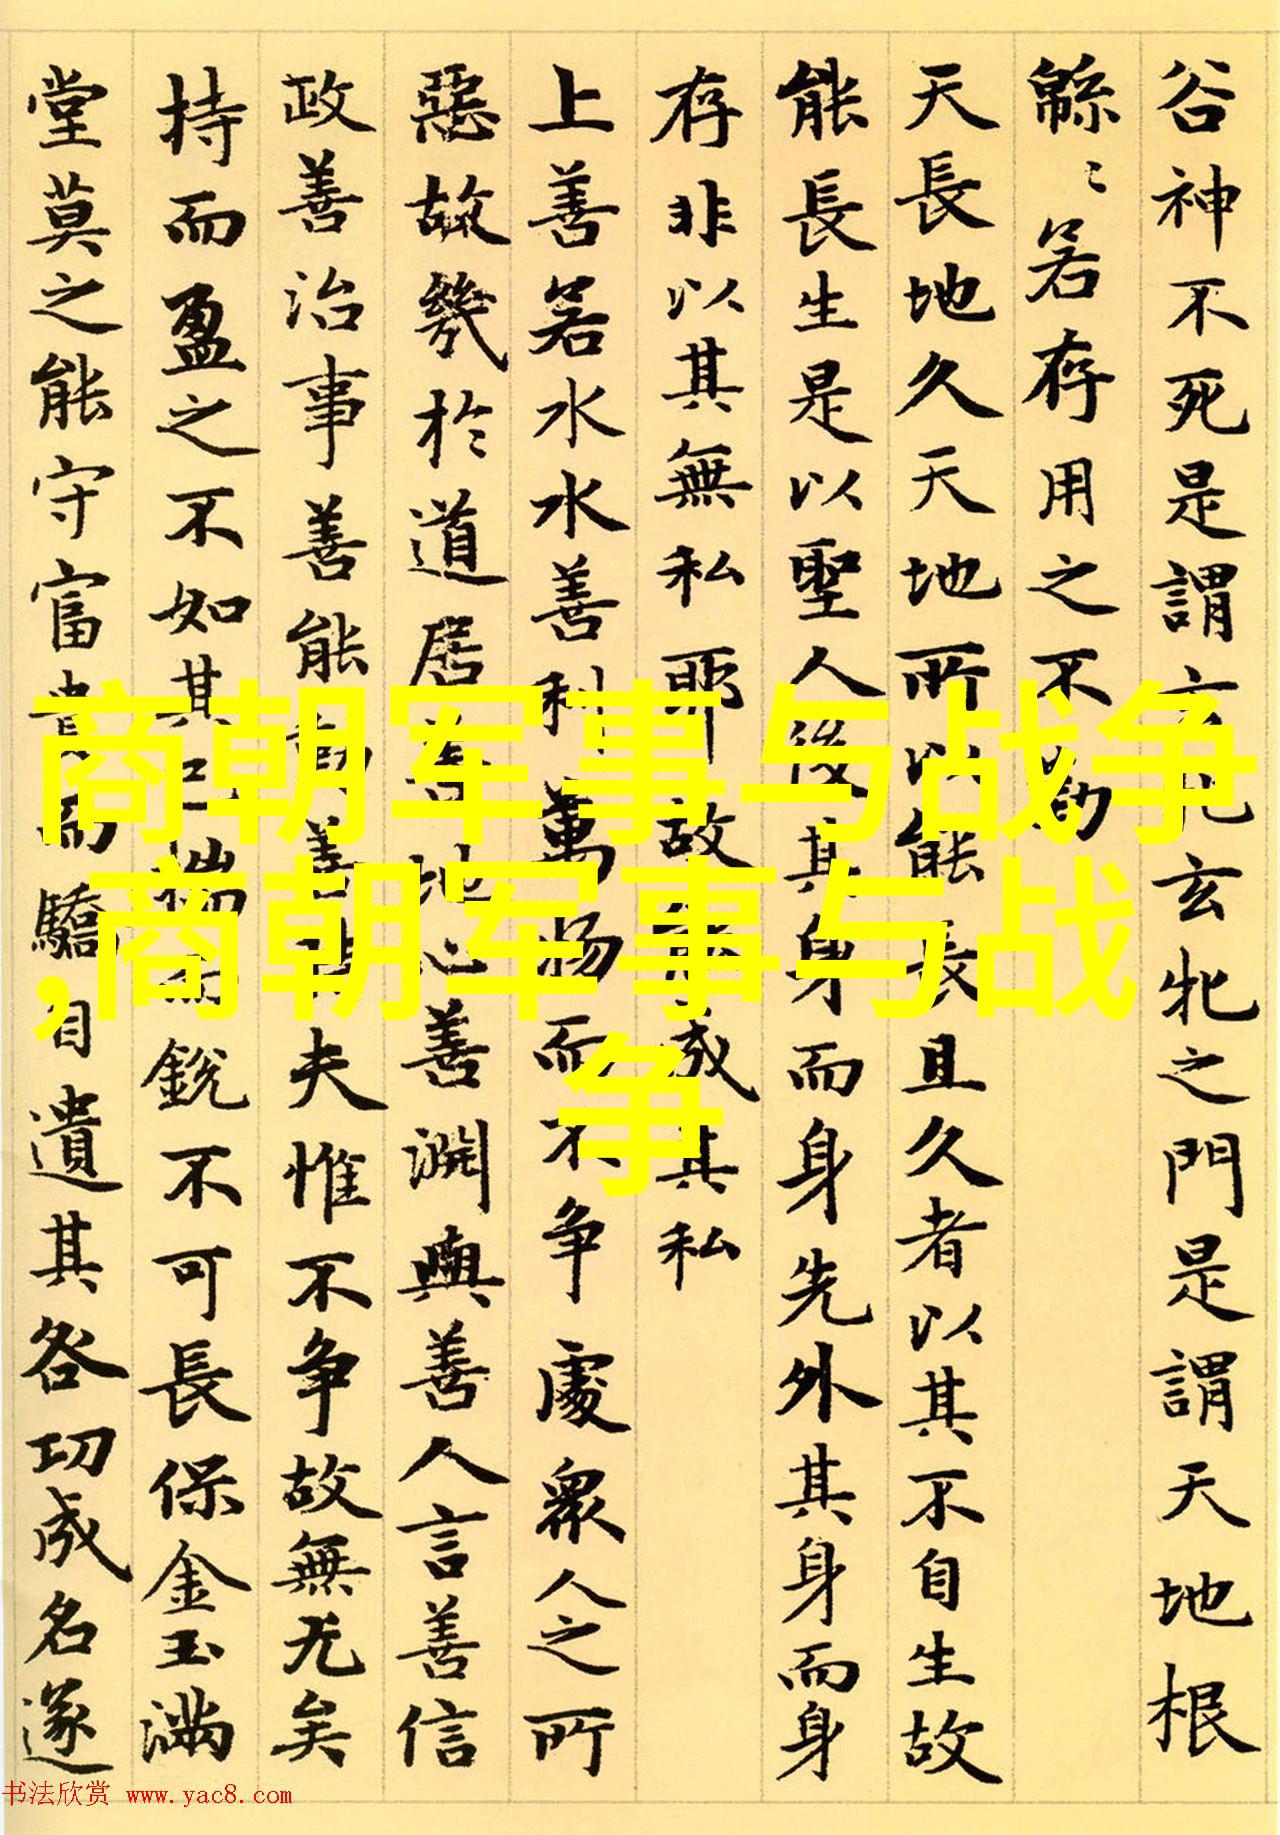 谷神不死是謂玄牝玄牝之門是謂天地根
緜〻若存用之不勤
天長地久天地所以能長且久者以其不自生故
能長生是以聖人後其身而身先外其身而身
存非以其無私耶故能成其私
上善若水水善利萬物而不争處衆人之所
惡故幾於道居善地心善淵與善人言善信
政善治事善能動善時夫惟不争故無尤矣
持而盈之不如其已揣而銳不可長保金玉滿
堂莫之能守富貴而驕自遺其咎功成名遂
商朝军事与战争
,商朝军事与战
争
书法欣赏 www.yac8.com